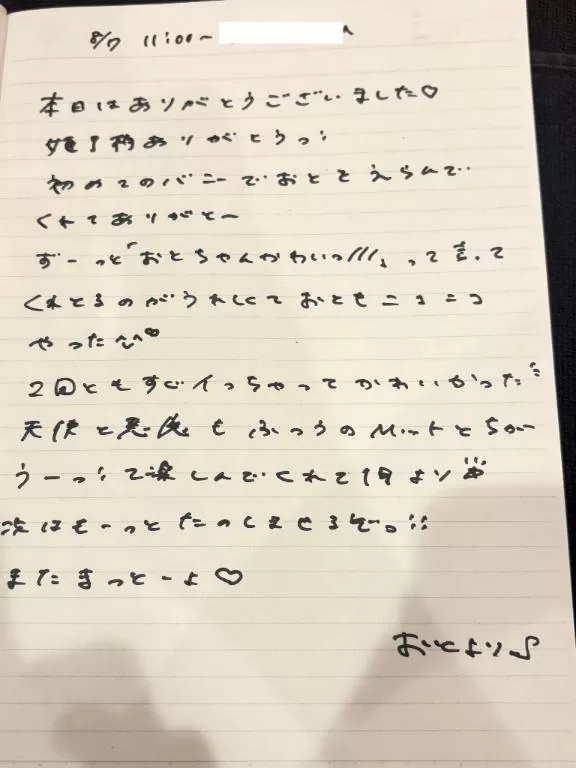 8/7 11:00~
本日はありがとうございました♡
ありがとうっ!
初めてのバニーでおとをえらんで
くれてありがとー
ずーっと「おとちゃんかわいっ///」って言って
くれとるのがうれしくておともニコニコ
やった〜♡
2回ともすぐイっちゃってかわいかった
天使と悪魔もふつうのMットとちがー
うーっ!て楽しんでくれて何より
次はもーっとたのしませるぞーっ!!
またまっとーよ♡
おとより♪